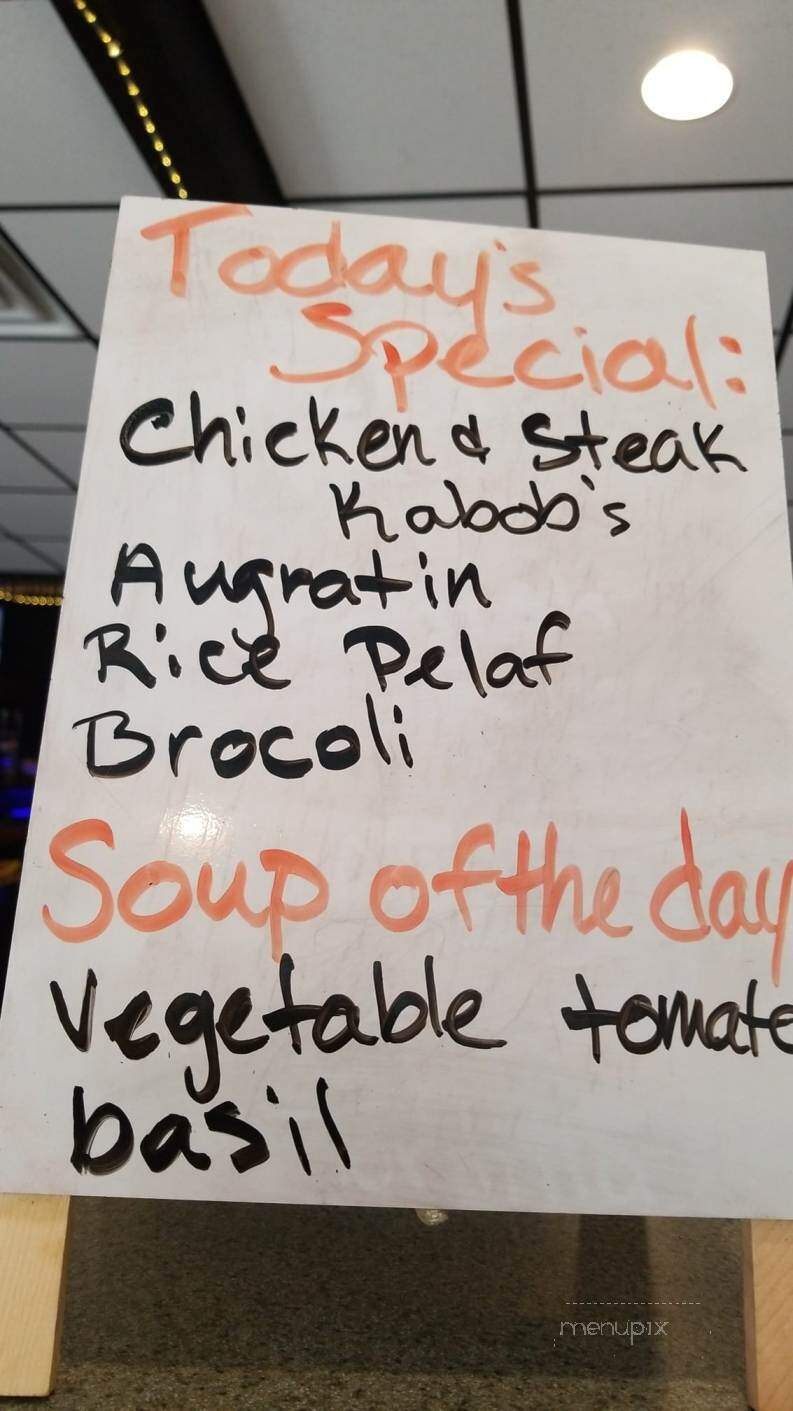 Today's
Special:
Chicken & Steak
Kabob's
Augratin
Rice Pelaf
Brocoli
Soup of the day
Vegetable tomato
basil
menupix